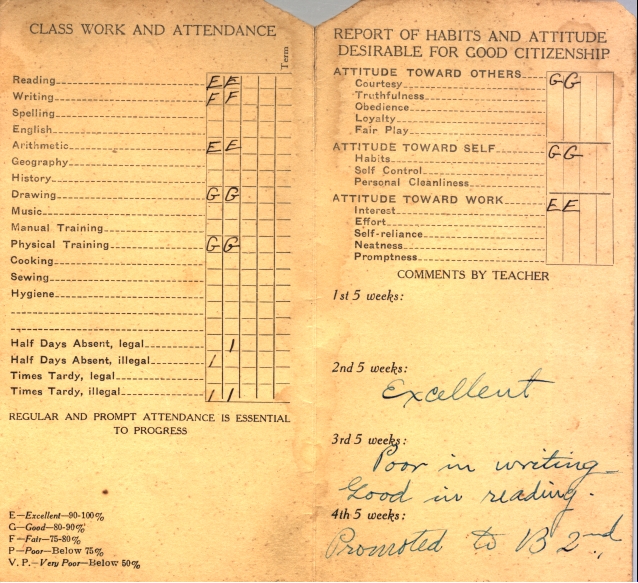 CLASS WORK AND ATTENDANCE
Term
Reading E E
Writing F F
Spelling
English
Arithmetic E E
Geography
History
Drawing G G
Music
Manual Training
Physical Training G G
Cooking
Sewing
Hygiene
Half Days Absent, legal 1
Half Days Absent, illegal 1
Times Tardy, legal
Times Tardy, illegal 1 1
REGULAR AND PROMPT ATTENDANCE IS ESSENTIAL
TO PROGRESS
E—Excellent—90-100%
G—Good—80-90%
F—Fair—75-80%
P—Poor—Below 75%
V. P.—Very Poor—Below 50%
REPORT OF HABITS AND ATTITUDE
DESIRABLE FOR GOOD CITIZENSHIP
ATTITUDE TOWARD OTHERS G G
Courtesy
Truthfulness
Obedience
Loyalty
Fair Play
ATTITUDE TOWARD SELF G G
Habits
Self Control
Personal Cleanliness
ATTITUDE TOWARD WORK E E
Interest
Effort
Self-reliance
Neatness
Promptness
COMMENTS BY TEACHER
1st 5 weeks:
2nd 5 weeks:
Excellent
3rd 5 weeks:
Poor in writing
Good in reading.
4th 5 weeks:
Promoted to B 2nd